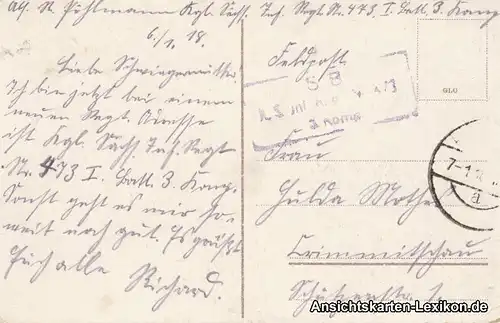 Abs. R. Pöhlmann Kgl. Sächs. Inf. Regt. Nr. 473 I. Batl. 3. Komp.
6./1. 18.
Liebe Schwiegermutter!
Ich bin jetzt bei einem
neuen Regt. Adresse
ist Kgl. Sächs. Inf. Regt
Nr. 473 I. Batl. 3. Komp.
Sonst geht es mir so-
weit noch gut. Es grüßt
Euch alle Richard.
Feldpost
S B
473
3 Komp
GLO
7-1.
a
Frau
Hulda Mothes
Crimmitschau
Ansichtskarten-Lexikon.de